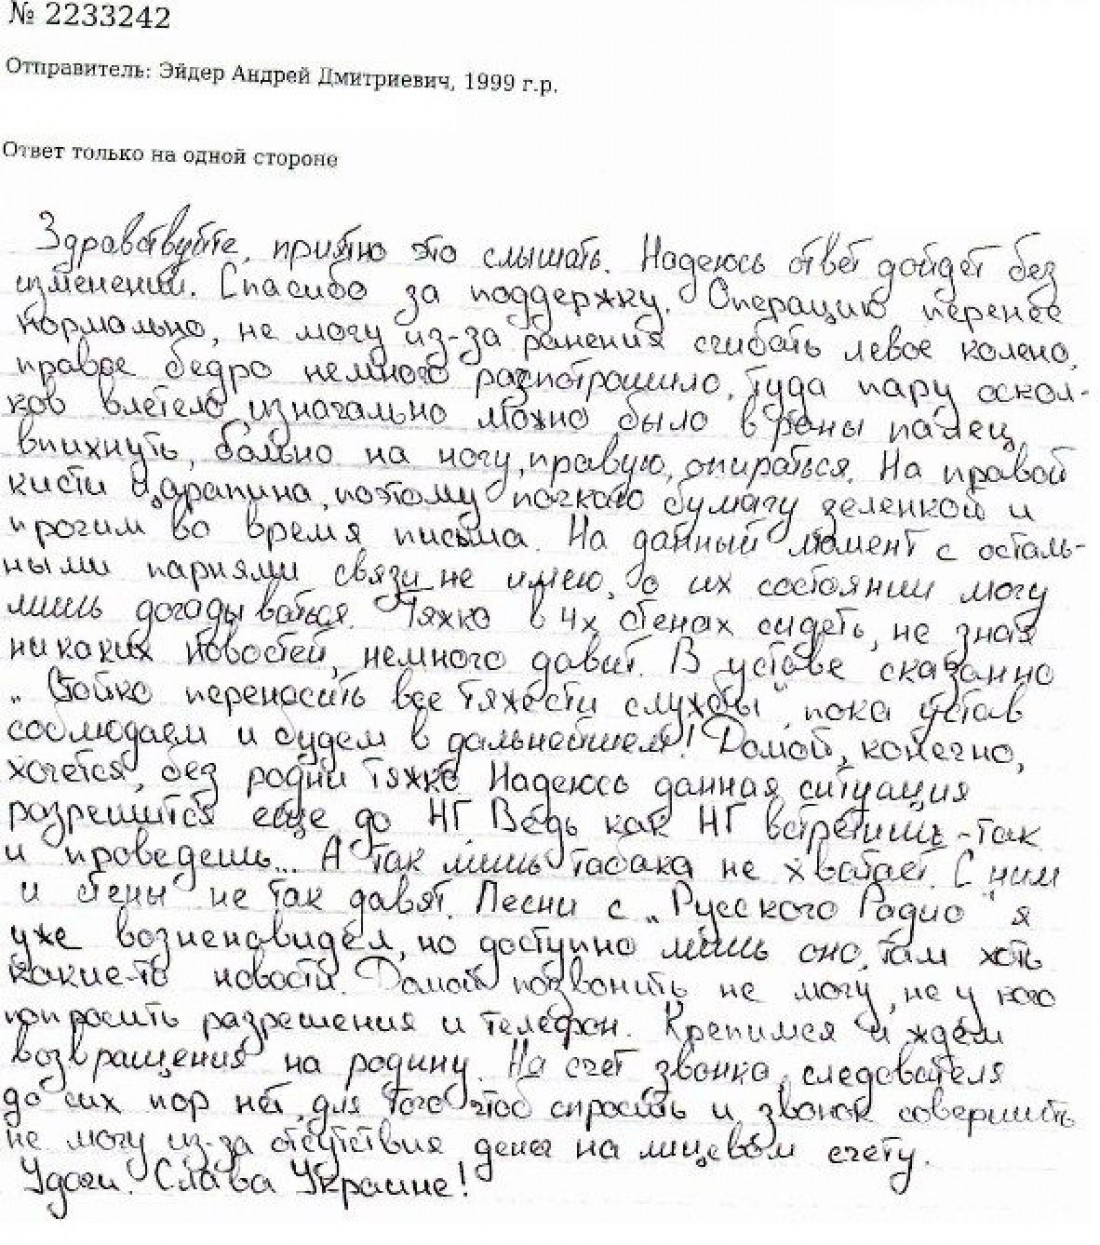 № 2233242
Отправитель: Эйдер Андрей Дмитриевич, 1999 г.р.
Ответ только на одной стороне
Здравствуйте, приятно это слышать. Надеюсь ответ дойдет без
изменений. Спасибо за поддержку. Операцию перенес
нормально, не могу из-за ранения сгибать левое колено,
правое бедро немного распотрошило, туда пару оскол-
ков влетело, изначально можно было в раны палец
впихнуть, больно на ногу, правую, опираться. На правой
кисти царапина, поэтому пачкаю бумагу зеленкой и
прочим во время письма. На данный момент с осталь-
ными парнями связи не имею, о их состоянии могу
лишь догадываться. Тяжко в 4х стенах сидеть, не зная
никаких новостей, немного давит. В уставе сказанно
„Стойко переносить все тяжести службы“, пока устав
соблюдаем и будем в дальнейшем! Домой, конечно,
хочется, без родни тяжко Надеюсь данная ситуация
разрешится еще до НГ Ведь как НГ встретишь - так
и проведешь... А так лишь табака не хватает. С ним
и стены не так давят. Песни с „Русского Радио“ я
уже возненавидел, но доступно лишь оно, там хоть
какие-то новости. Домой позвонить не могу, не у кого
попросить разрешения и телефон. Крепимся и ждем
возвращения на родину. На счет звонка, следователя
до сих пор нет, для того чтоб спросить и звонок совершить
не могу из-за отсутствия денег на лицевом счету.
Удачи. Слава Украине!